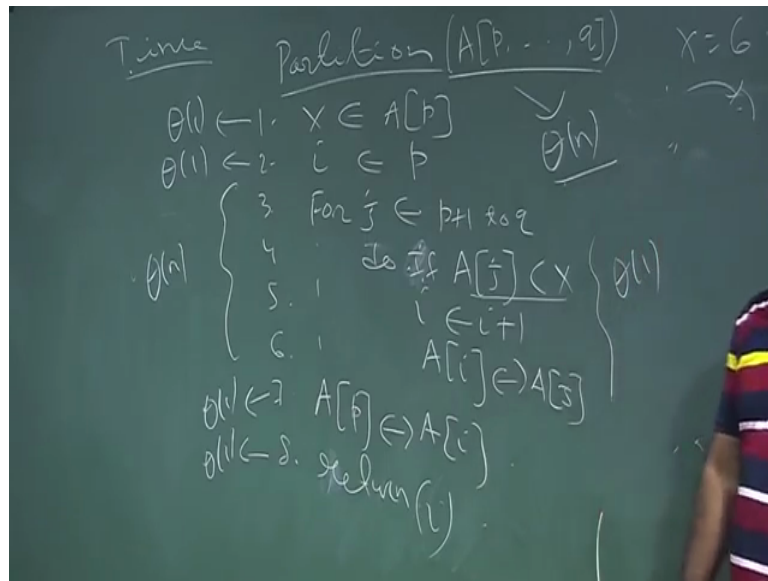 Time Partition (A[p, ..., q]) x = 6
θ(1) ← 1. x ∈ A[p] θ(n)
θ(1) ← 2. i ∈ p
3. For j ∈ p+1 to q
θ(n) 4. do if A[j] < x θ(1)
5. i ← i+1
6. A[i] ↔ A[j]
θ(1) ← 7. A[p] ↔ A[i]
θ(1) ← 8. return (i)